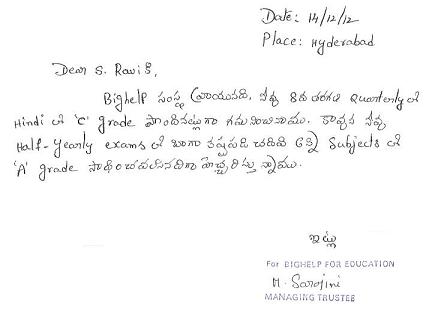 Date: 14/12/12
Place: Hyderabad
Dear S. Ravi k,
Bighelp సంస్థ వ్రాయునది, నీవు 8వ తరగతి Quarterly లో
Hindi లో 'C' grade పొందినట్లుగా గమనించినాము. కావున నీవు
Half-Yearly exams లో బాగా కష్టపడి చదివి అన్ని Subjects లో
'A' grade సాధించవలసినదిగా హెచ్చరిస్తున్నాము.
ఇట్లు
For BIGHELP FOR EDUCATION
M. Sarojini
MANAGING TRUSTEE